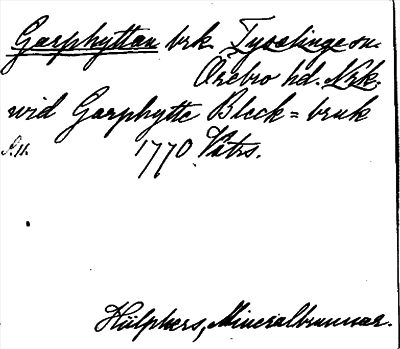 Garphyttan brk. Tysslinge sn.
Örebro hd. Nrk.
wid Garphytte Bleck=bruk
S.11. 1770 Vätrs.
Hülphers, Mineralbrunnar.